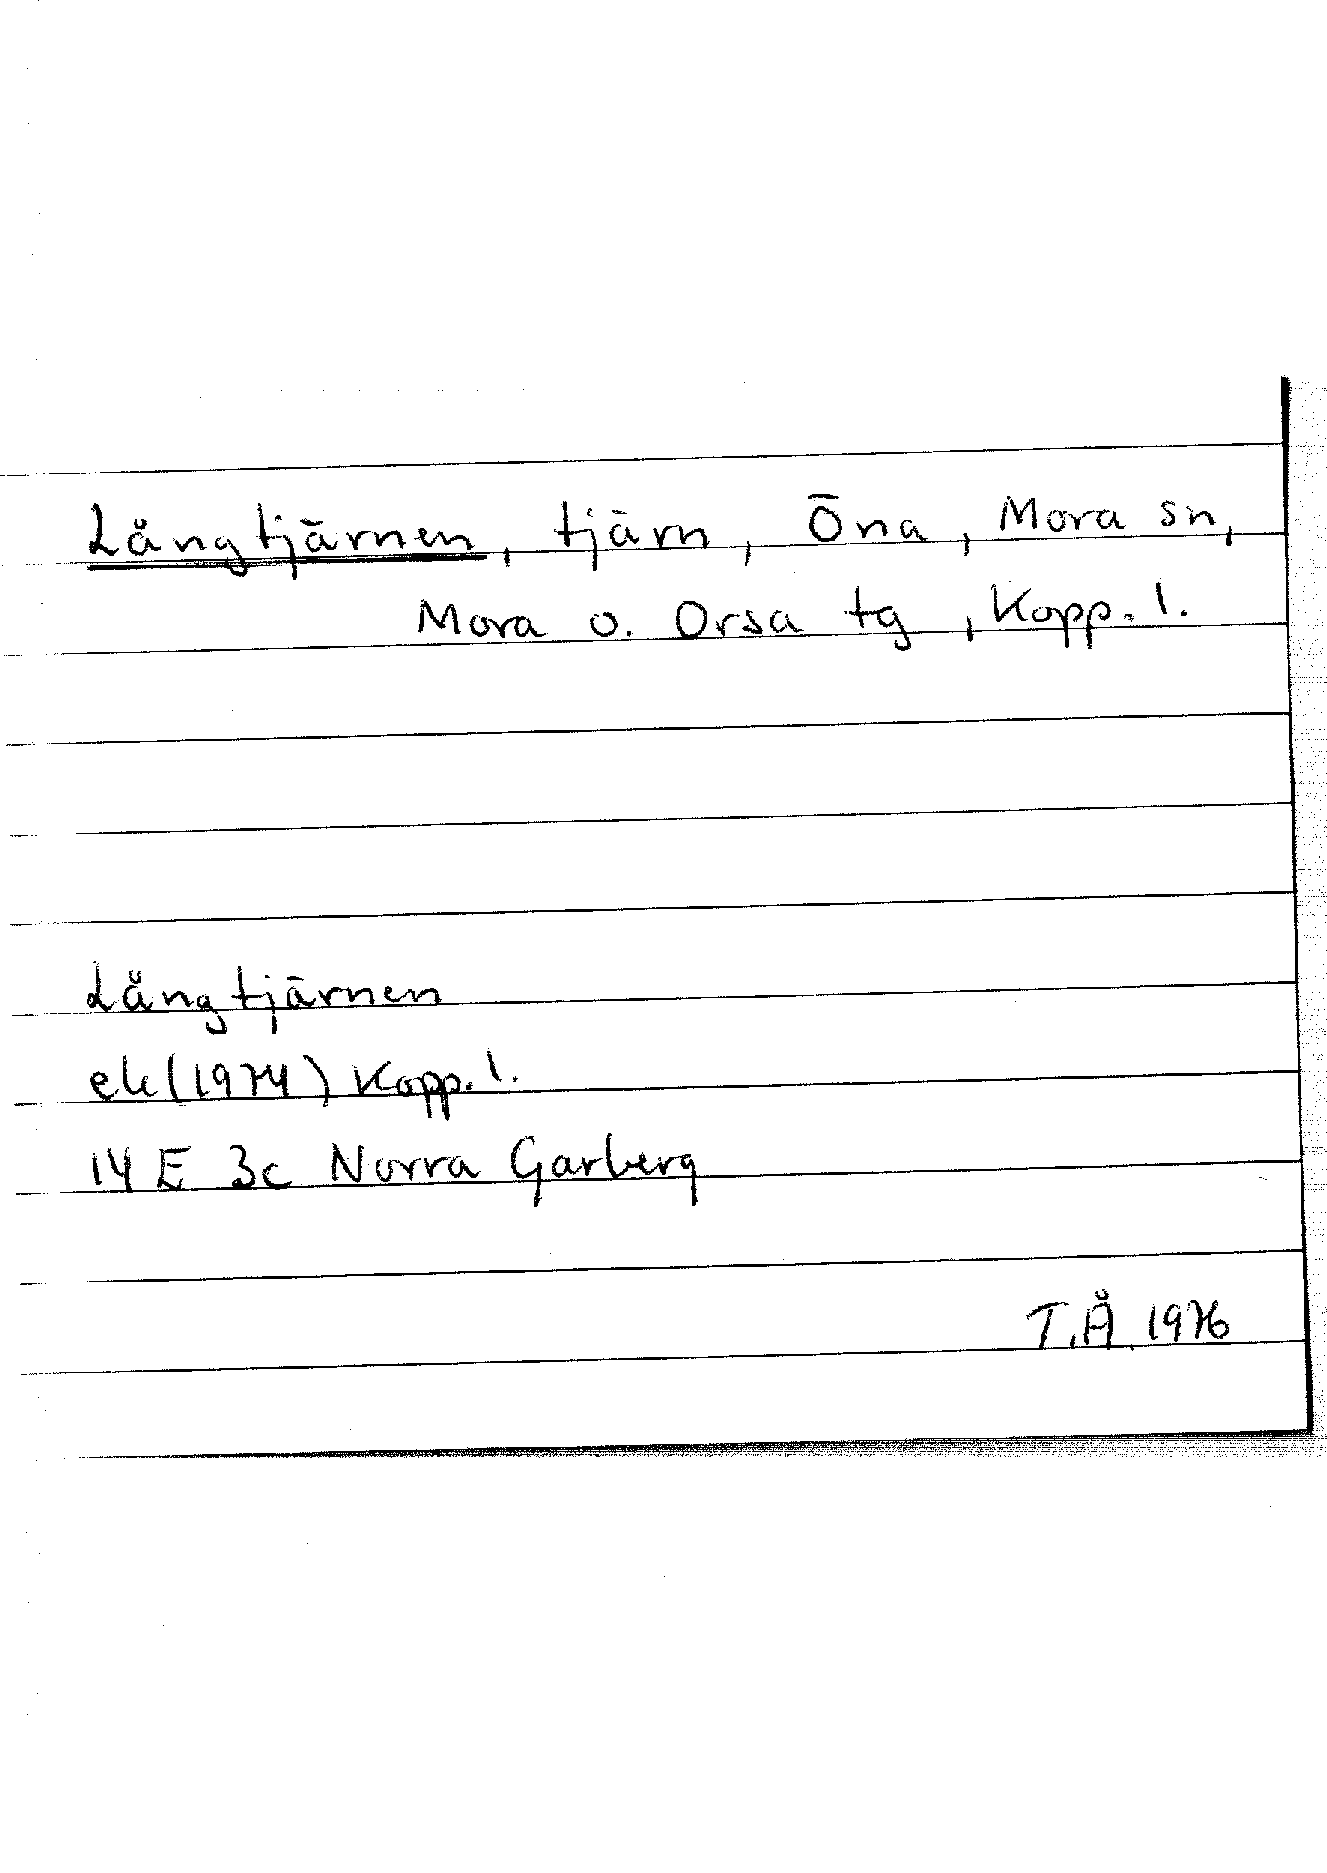 Långtjärnen, tjärn, Öna, Mora sn,
Mora o. Orsa tg, Kopp. l.
Långtjärnen
ek (1974) Kopp. l.
14 E 3c Norra Garberg
T.Å. 1976